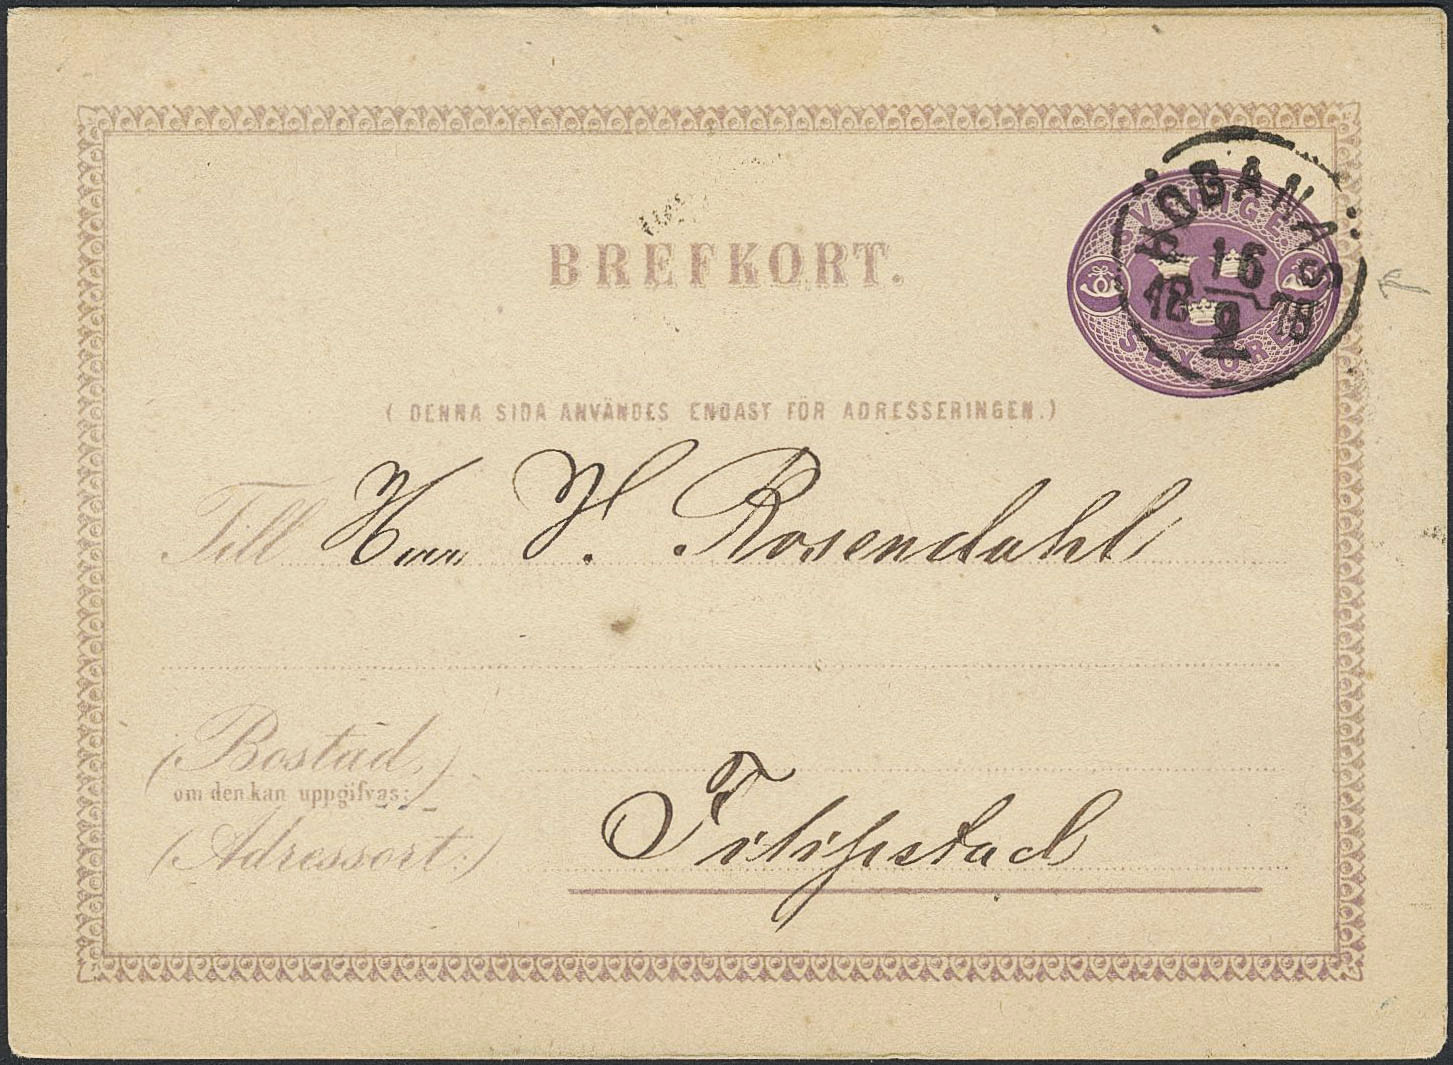 BREFKORT.
SVERIGE
SEX ÖRE
HÖGANÄS
16
18 78
9
( DENNA SIDA ANVÄNDES ENDAST FÖR ADRESSERINGEN.)
Till Herr W. Rosendahl
(Bostad,)
om den kan uppgifvas:
(Adressort:) Filipstad